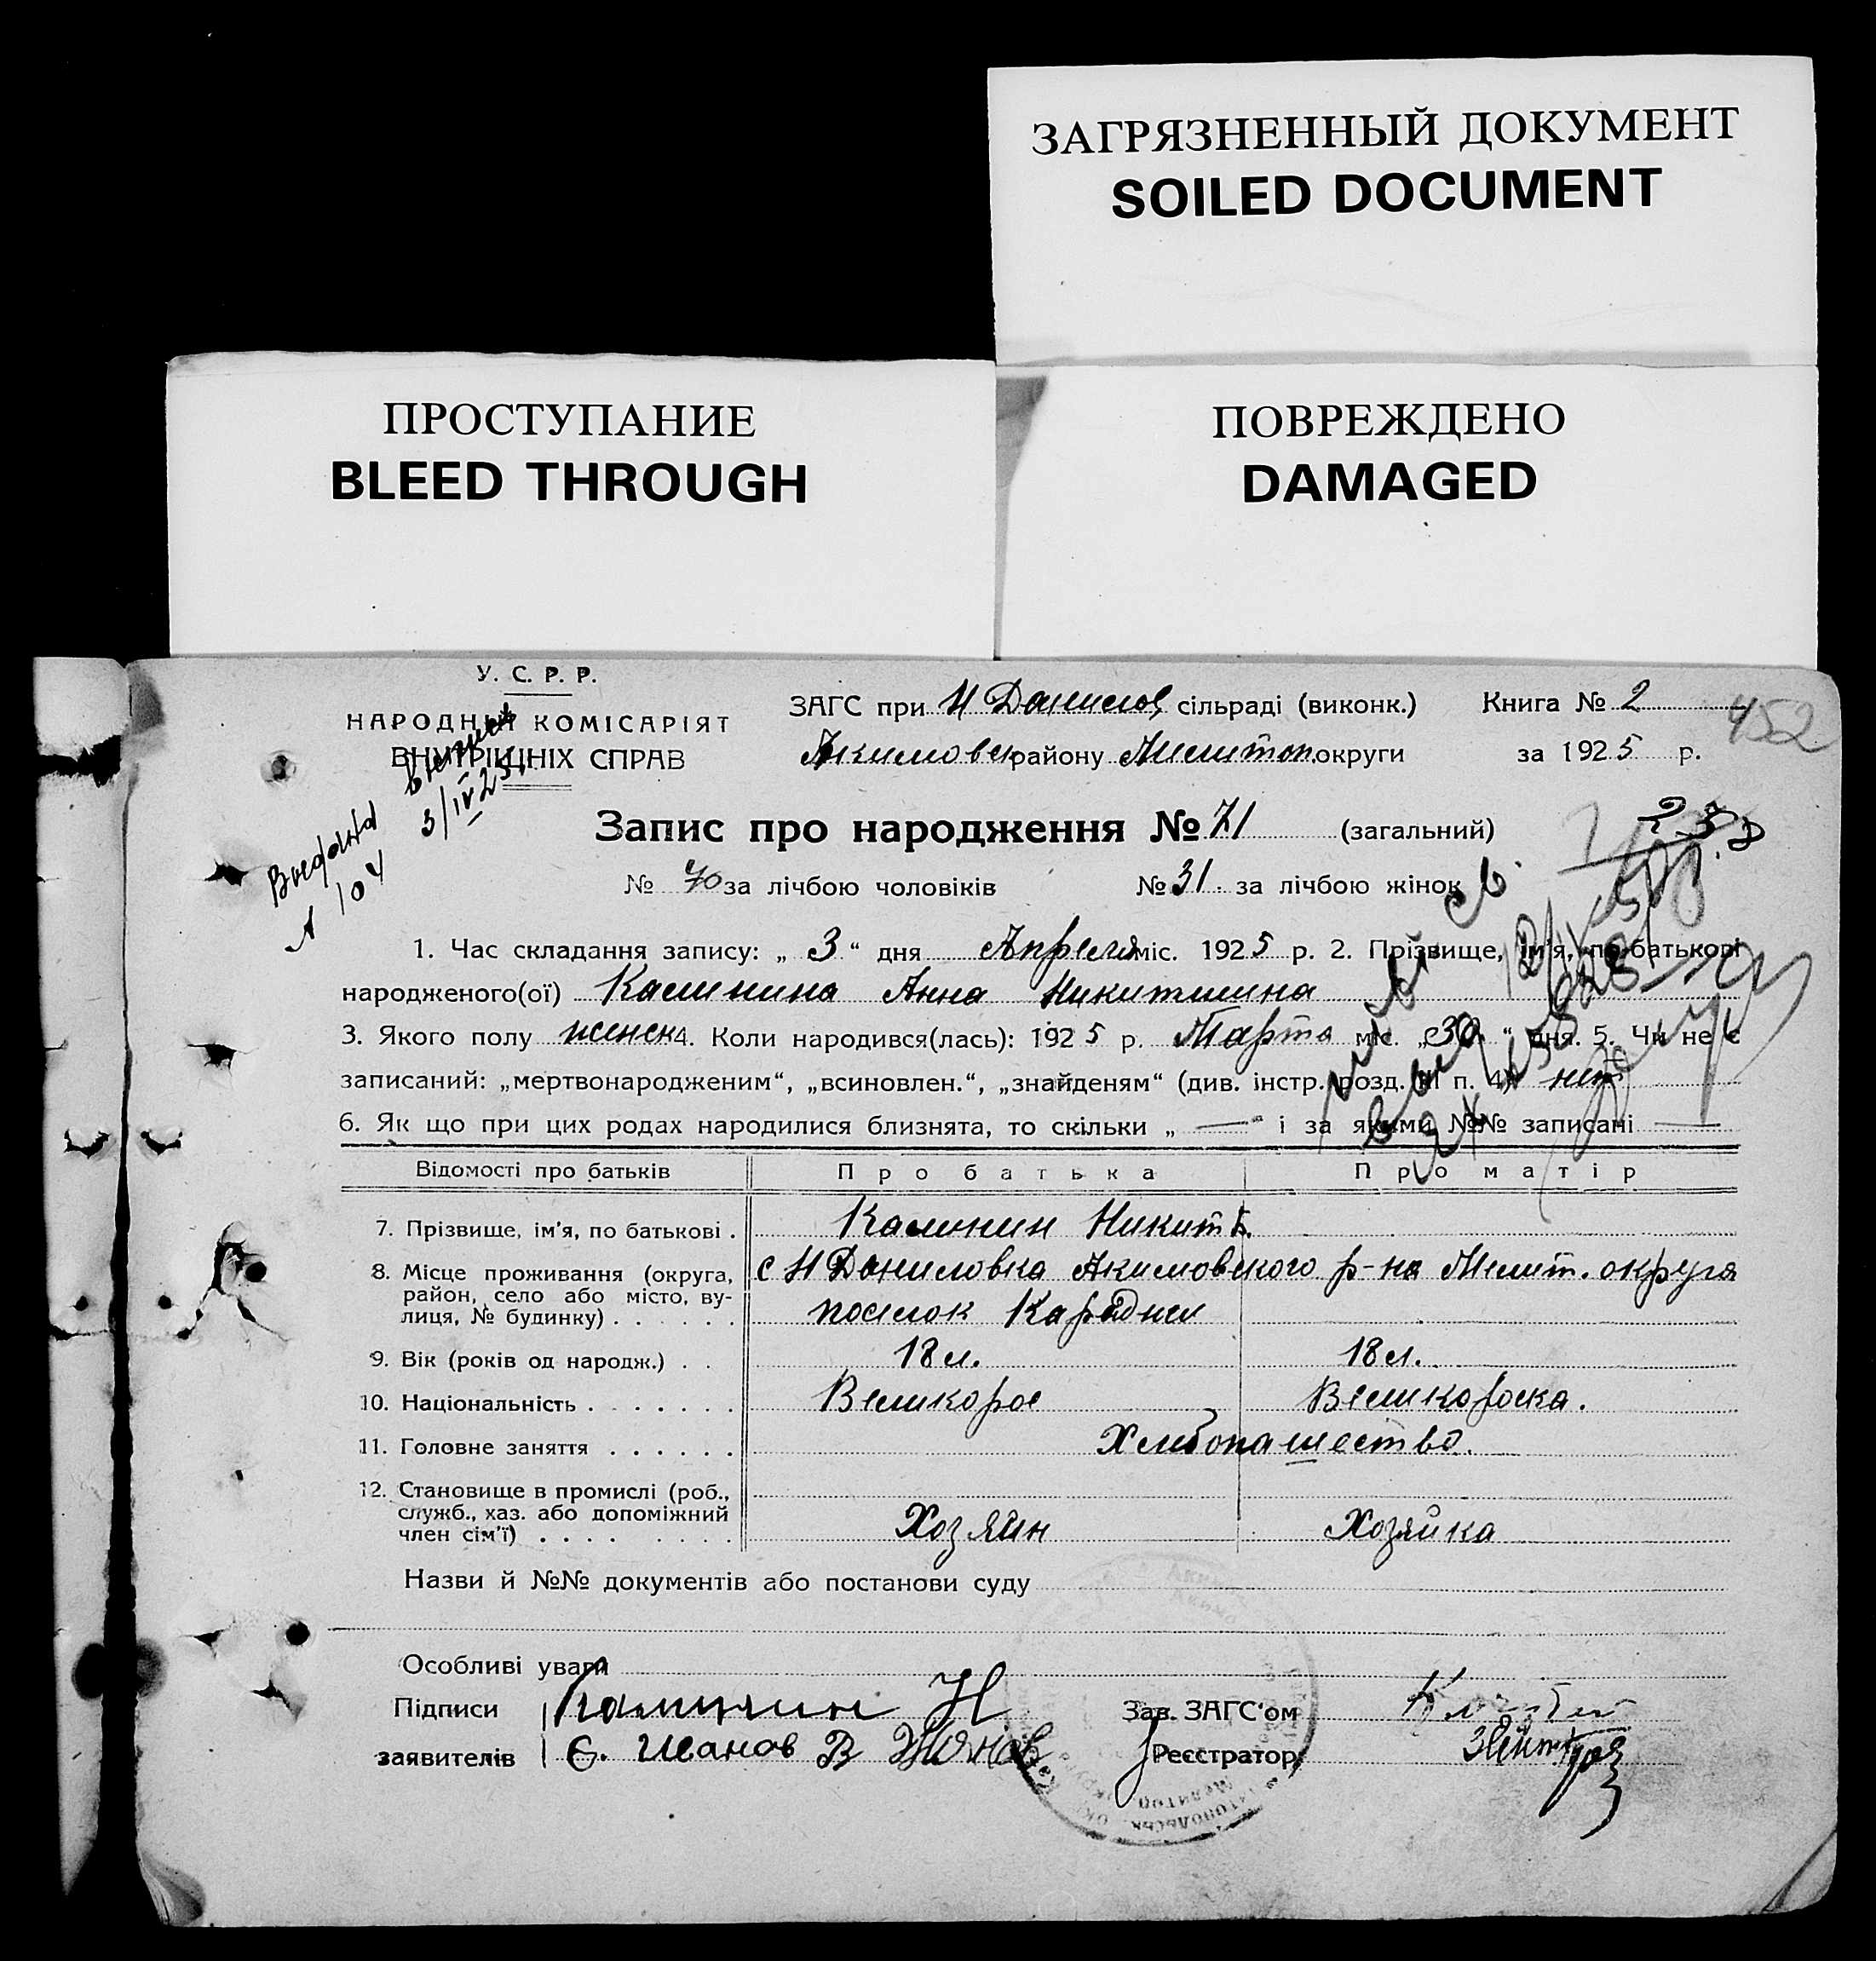 ЗАГРЯЗНЕННЫЙ ДОКУМЕНТ
SOILED DOCUMENT
ПРОСТУПАНИЕ
BLEED THROUGH
ПОВРЕЖДЕНО
DAMAGED
У. С. Р. Р.
НАРОДНИЙ КОМІСАРІЯТ
ВНУТРІШНІХ СПРАВ
ЗАГС при Н Данилов, сільраді (виконк.) Книга № 2
452
Акимовск району Мелитоп. округи за 1925 р.
3/IV 25
Запис про народження № 71 (загальний)
№ 40 за лічбою чоловіків № 31. за лічбою жінок
1. Час складання запису: „ 3 “ дня Апреля міс. 1925 р. 2. Прізвище, ім'я, по батькові
народженого(ої) Калинина Анна Никитишна
3. Якого полу женск 4. Коли народився(лась): 1925 р. Марта міс. „ 30 “ дня. 5. Чи не є
записаний: „мертвонародженим“, „всиновлен.“, „знайденям“ (див. інстр. розд. III п. 4) нет
6. Як що при цих родах народилися близнята, то скільки „ — “ і за якими №№ записані —
Відомості про батьків Про батька Про матір
7. Прізвище, ім'я, по батькові . Калинин Никита
8. Місце проживання (округа, с Н Даниловка Акимовского р-на Мелит. округа
район, село або місто, ву-
лиця, № будинку) . . . . . . поселок
9. Вік (років од народж.) . . 18 л. 18 л.
10. Національність . . . . . . . Великорос Великороска.
11. Головне заняття . . . . . . Хлебопашество.
12. Становище в промислі (роб.,
служб., хаз. або допоміжний
член сім'ї) . . . . . . . . Хозяин Хозяйка
Назви й №№ документів або постанови суду
Особливі уваги
Підписи Калинин Н Зав. ЗАГС'ом
заявителів Реєстратор